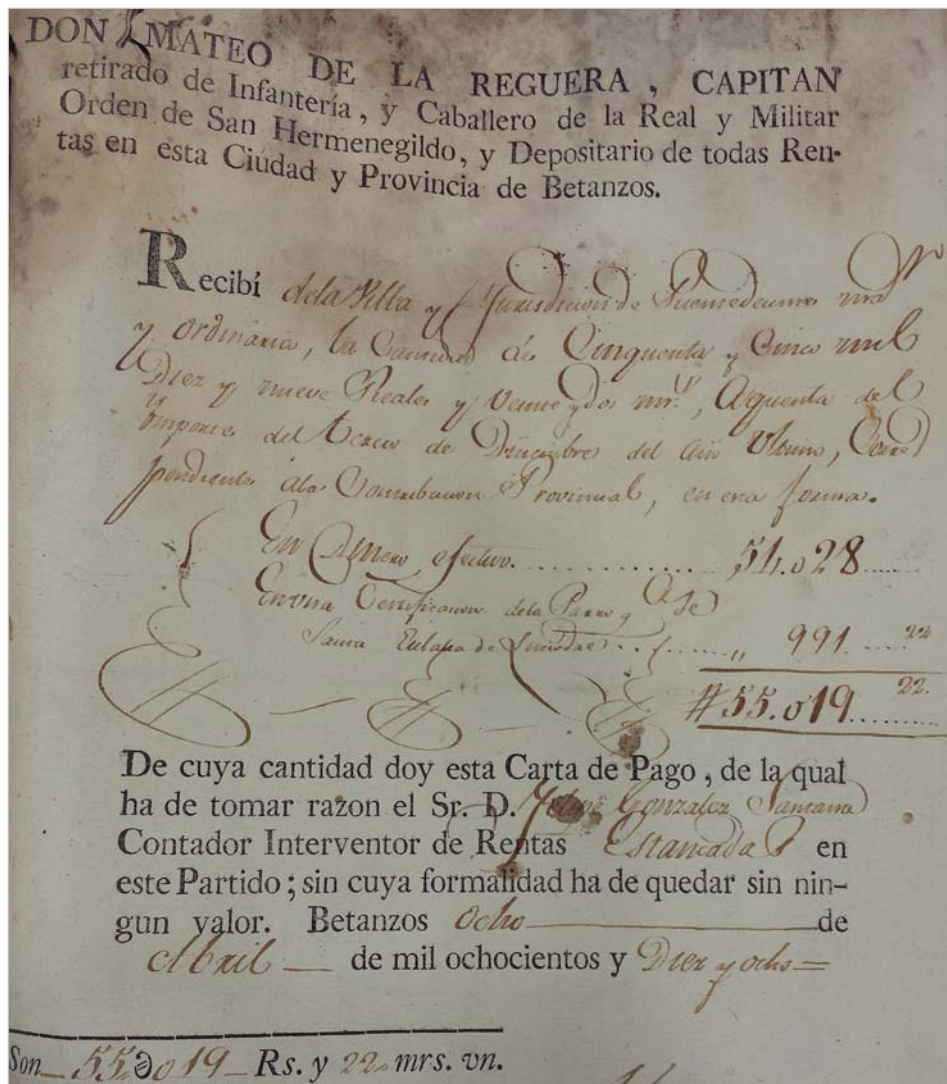 DON MATEO DE LA REGUERA, CAPITAN
retirado de Infantería, y Caballero de la Real y Militar
Orden de San Hermenegildo, y Depositario de todas Ren-
tas en esta Ciudad y Provincia de Betanzos.
Recibí dela Villa y Jurisdicion de Puentedeume
y ordinaria, la Cantidad de Cinquenta y Cinco mil
Diez y nueve Reales y Veinte y dos mrs., Aquenta del
importe del tercio de Diciembre del año Ultimo, Corres
pondiente ala Contribucion Provincial, en esta forma.
En Dinero efectivo. .............. 54.028 ......
En una Certificacion dela Parroq.a de
Santa Eulalia de ........ 991. ..... 22
#55.019 ......... 22.
De cuya cantidad doy esta Carta de Pago, de la qual
ha de tomar razon el Sr. D. Felipe Gonzalez Santana
Contador Interventor de Rentas Estancadas en
este Partido; sin cuya formalidad ha de quedar sin nin-
gun valor. Betanzos Ocho de
Abril de mil ochocientos y Diez y ocho =
Son 55.019 Rs. y 22 mrs. vn.